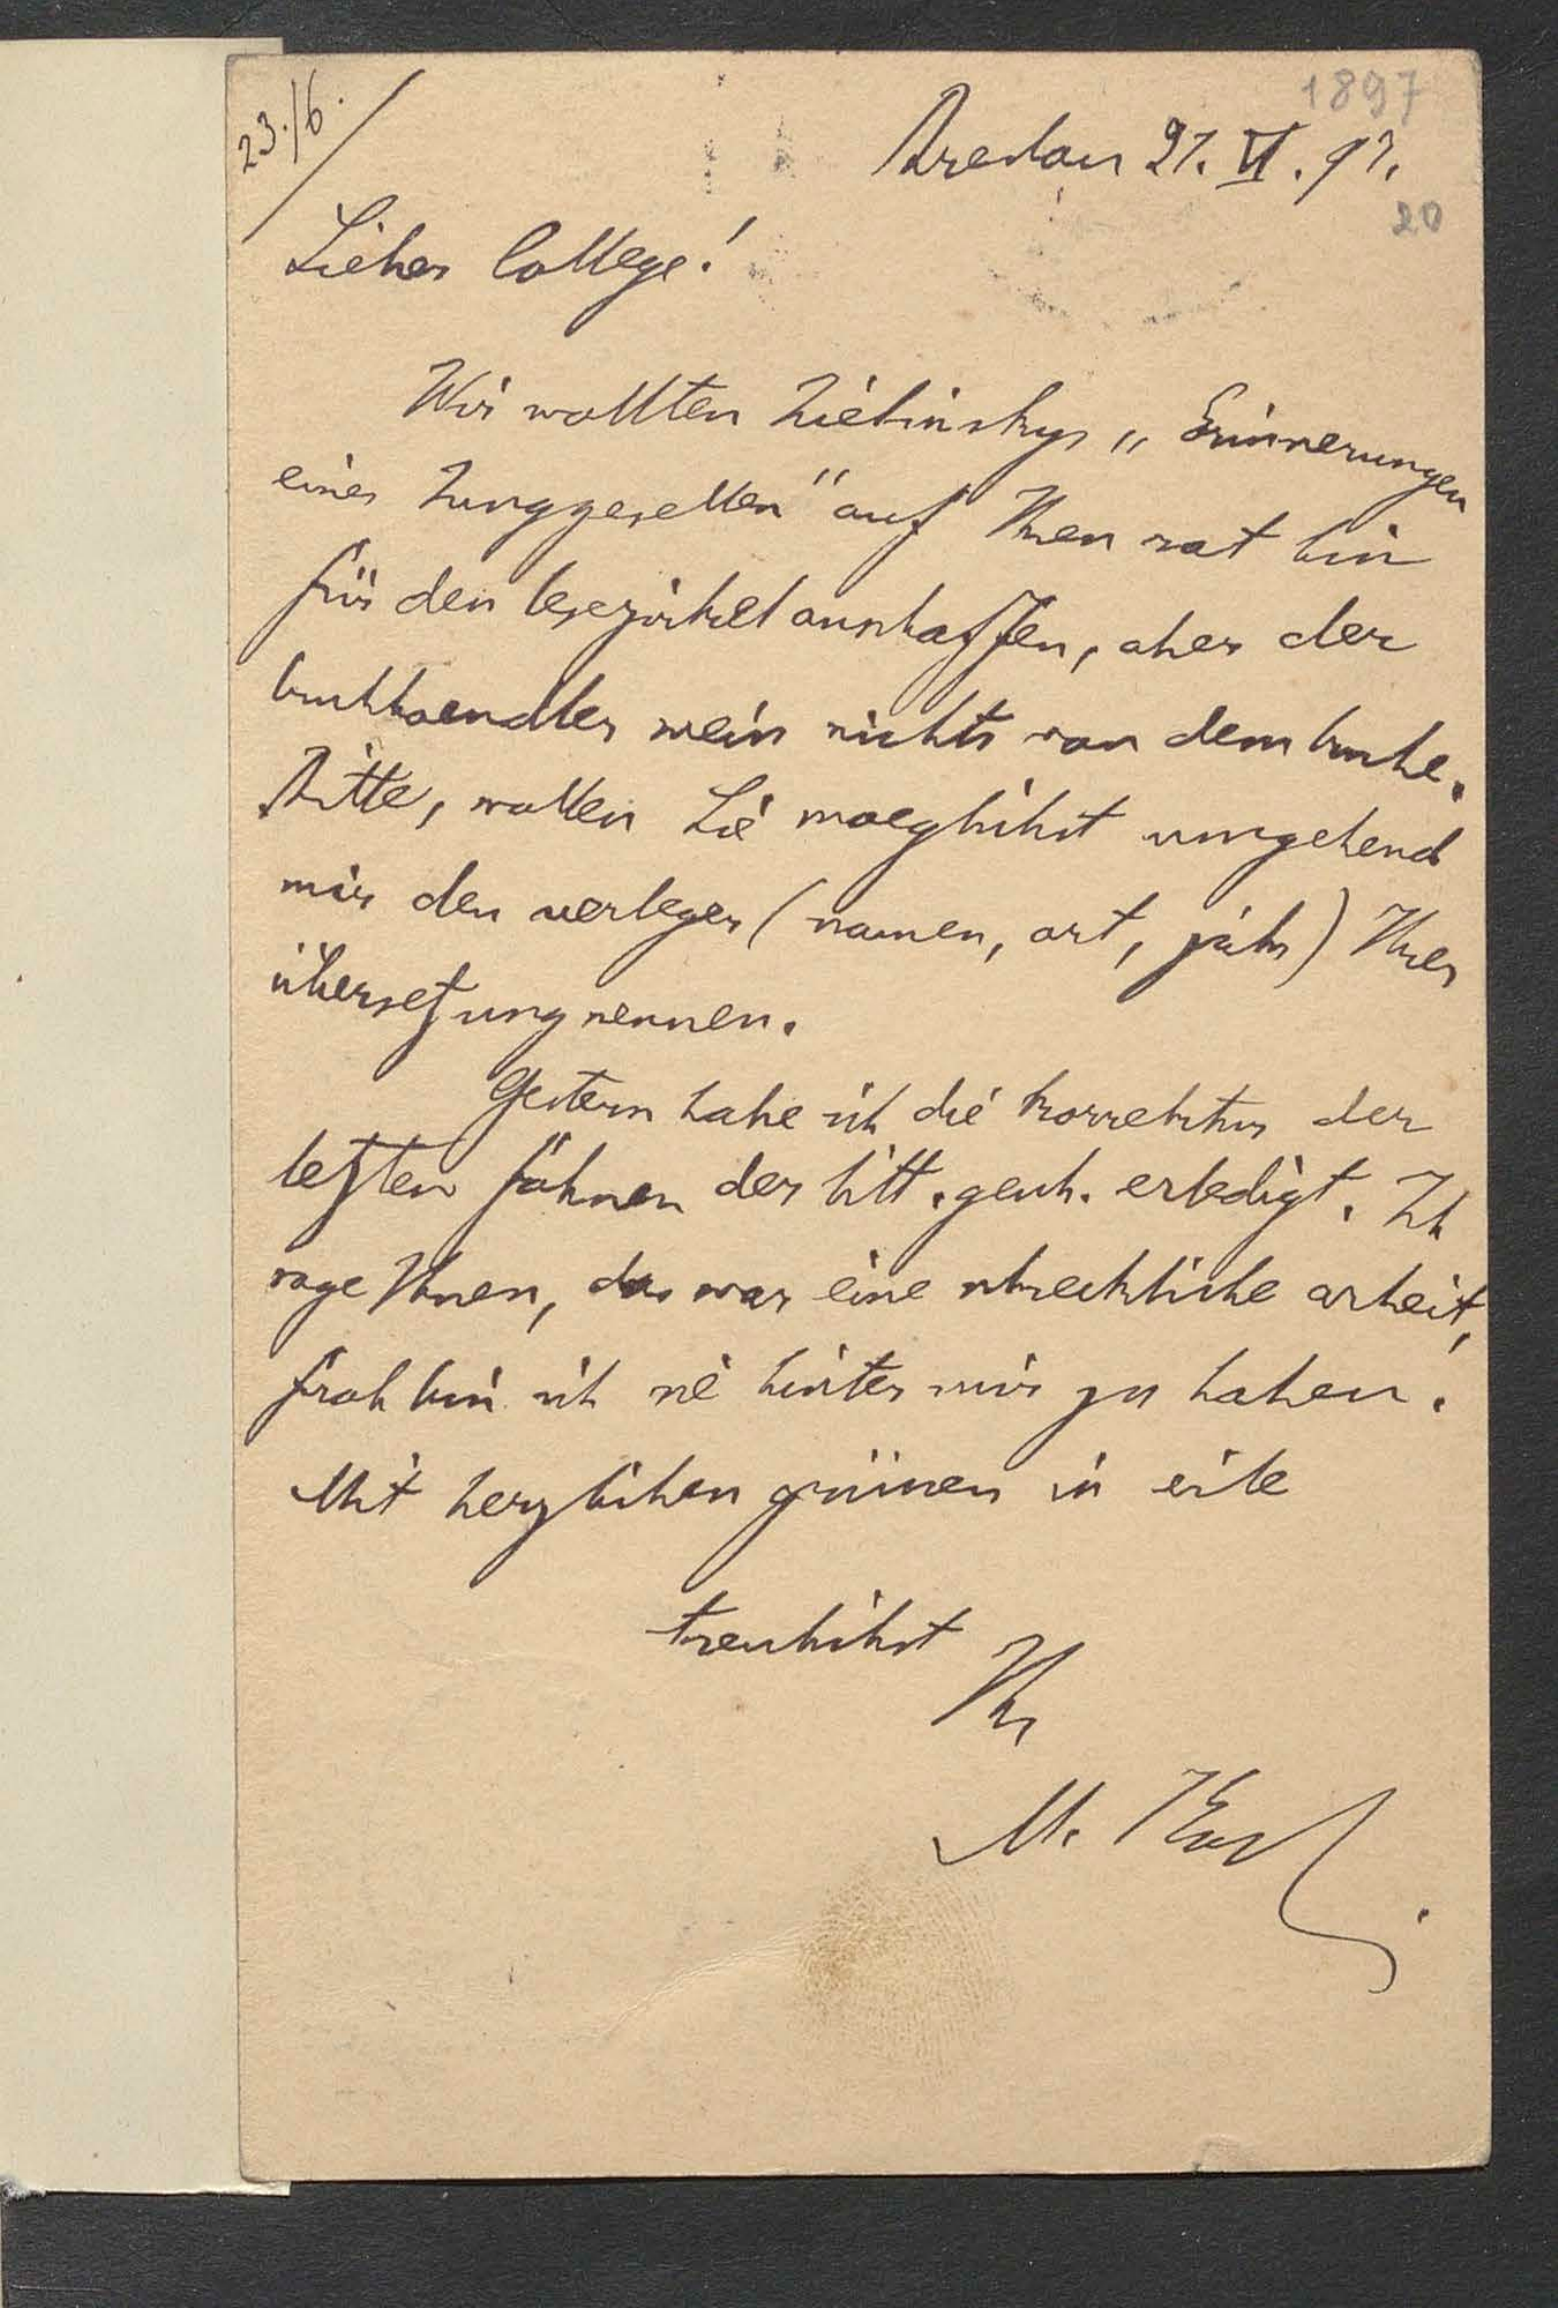 1897
23./6.
Breslau 21. VI. 97.
20
Lieber College!
Wir wollten Zielinskys „Erinnerungen
eines Junggesellen" auf Ihren rat hin
für den lesezirkel anschaffen, aber der
buchhaendler weiss nichts von dem buche.
Bitte, wollen Sie moeglichst umgehend
mir den verleger (namen, ort, jahr) Ihrer
übersetzung nennen.
Gestern habe ich die korrektur der
letzten fahnen der litt. gesch. erledigt. Ich
sage Ihnen, das war eine schreckliche arbeit,
froh bin ich sie hinter mir zu haben.
Mit herzlichen grüssen in eile
treulichst
Ihr
M.